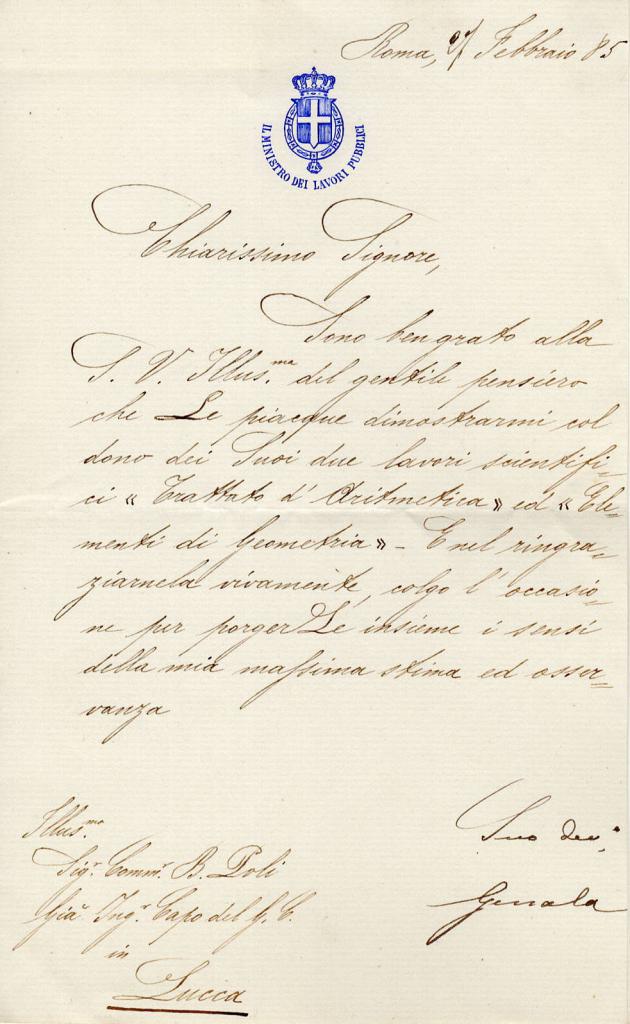 Roma, Febbraio 85
IL MINISTRO DEI LAVORI PUBBLICI
Chiarissimo Signore,
Sono ben grato alla
S. V. Illus.ma del gentile pensiero
che Le piacque dimostrarmi col
dono dei Suoi due lavori scientifi=
ci « Trattato d' Aritmetica » ed « Ele=
menti di Geometria » - E nel ringra=
ziarnela vivamente, colgo l' occasio=
ne per porgerLe insieme i sensi
della mia massima stima ed osser=
vanza
Suo dev.
Genala
Illus.mo
Sigr. Commr. B. Poli
Già Ingr. Capo del G. C.
in
Lucca